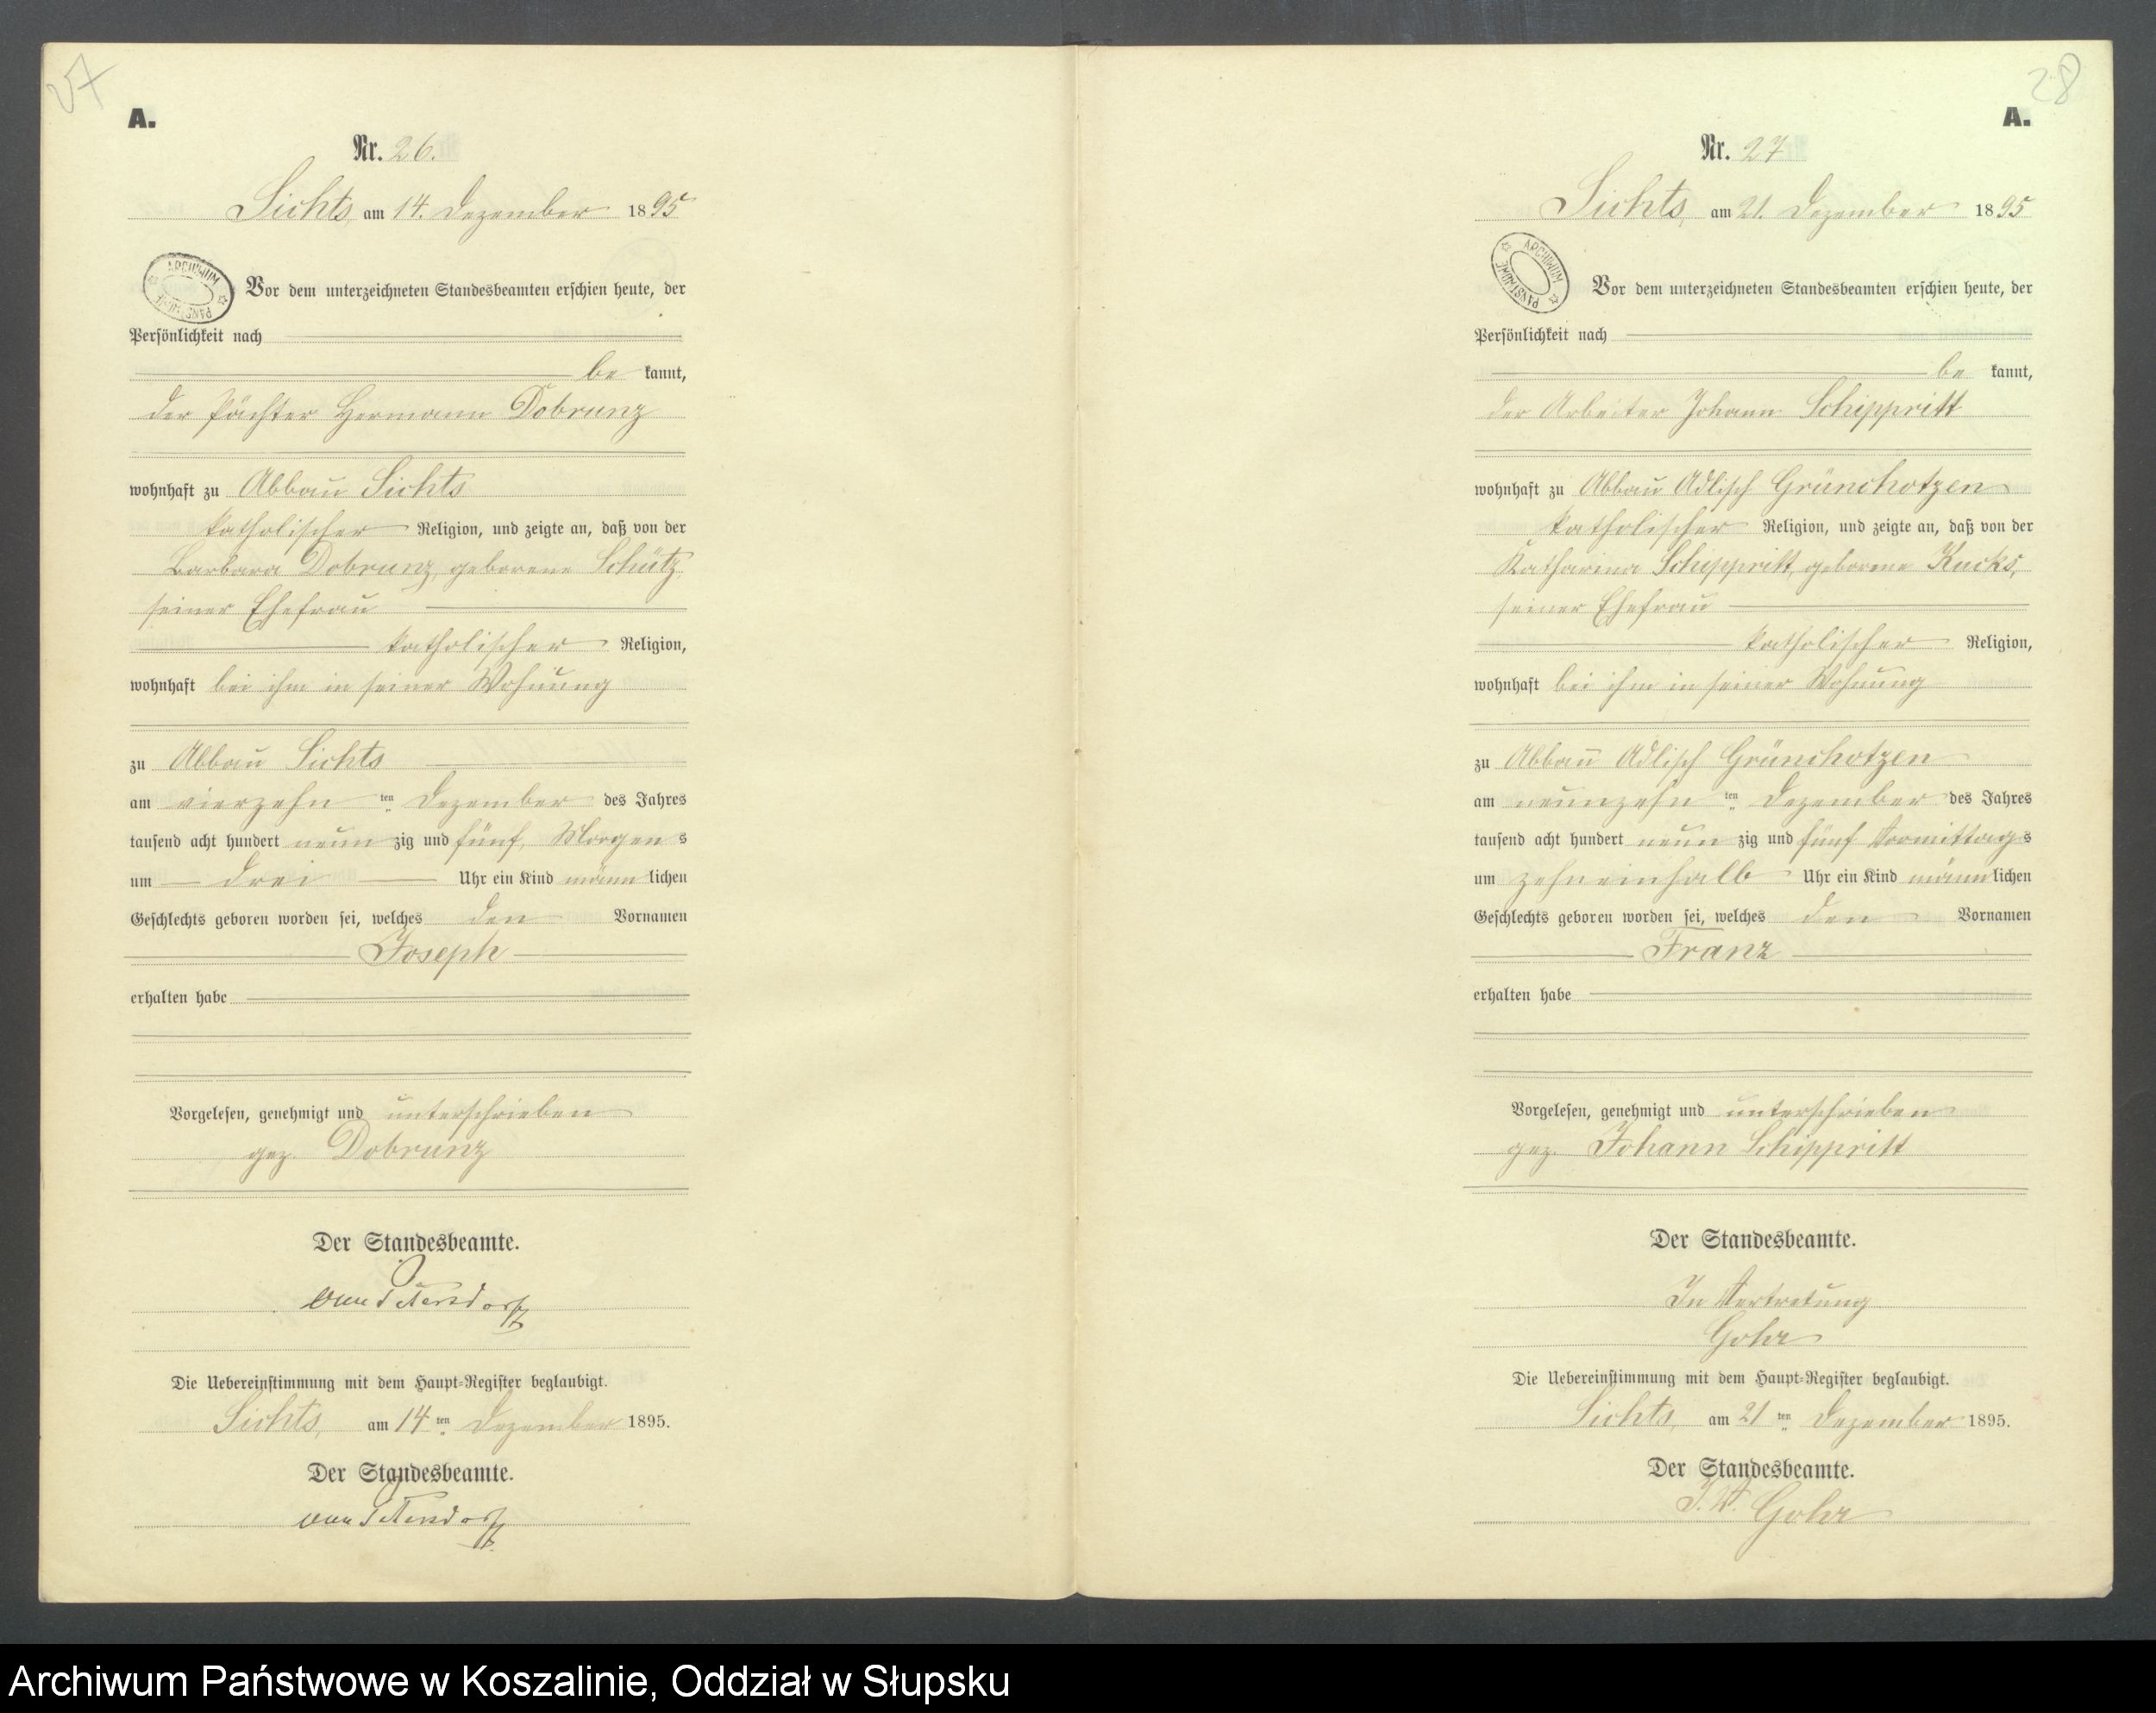 27
A.
Nr. 26.
Sichts, am 14. Dezember 1895
ARCHIWUM PAŃSTWOWE
Vor dem unterzeichneten Standesbeamten erschien heute, der
Persönlichkeit nach
be kannt,
der Pächter Hermann Dobrunz
wohnhaft zu Abbau Sichts
katholischer Religion, und zeigte an, daß von der
Barbara Dobrunz, geborene Schütz,
seiner Ehefrau
katholischer Religion,
wohnhaft bei ihm in seiner Wohnung
zu Abbau Sichts
am vierzehn ten Dezember des Jahres
tausend acht hundert neun zig und fünf, Morgen s
um drei Uhr ein Kind männ lichen
Geschlechts geboren worden sei, welches den Vornamen
Joseph
erhalten habe
Vorgelesen, genehmigt und unterschrieben
gez. Dobrunz
Der Standesbeamte.
Die Uebereinstimmung mit dem Haupt=Register beglaubigt.
Sichts, am 14 ten Dezember 1895.
Der Standesbeamte.
28
A.
Nr. 27
Sichts, am 21. Dezember 1895
ARCHIWUM PAŃSTWOWE
Vor dem unterzeichneten Standesbeamten erschien heute, der
Persönlichkeit nach
be kannt,
der Arbeiter Johann Schippritt
wohnhaft zu Abbau Adlisch Grünchotzen
katholischer Religion, und zeigte an, daß von der
Katharina Schippritt, geborene Kucks,
seiner Ehefrau
katholischer Religion,
wohnhaft bei ihm in seiner Wohnung
zu Abbau Adlisch Grünchotzen
am neunzehn ten Dezember des Jahres
tausend acht hundert neun zig und fünf Vormittag s
um zehneinhalb Uhr ein Kind männ lichen
Geschlechts geboren worden sei, welches den Vornamen
Franz
erhalten habe
Vorgelesen, genehmigt und unterschrieben
gez. Johann Schippritt
Der Standesbeamte.
In Vertretung
Gohr
Die Uebereinstimmung mit dem Haupt=Register beglaubigt.
Sichts, am 21 ten Dezember 1895.
Der Standesbeamte.
J. V. Gohr
Archiwum Państwowe w Koszalinie, Oddział w Słupsku